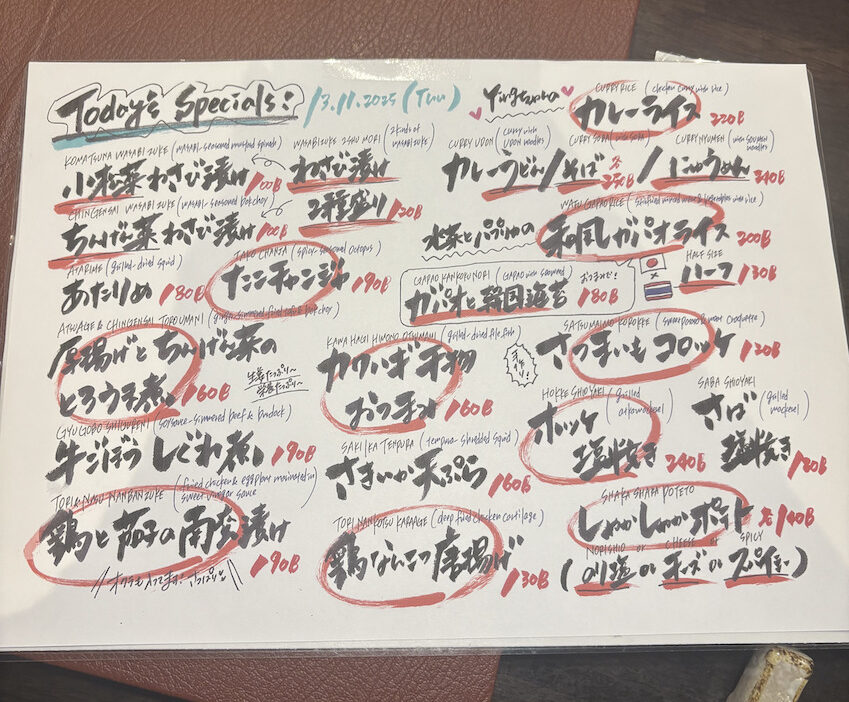 Today's Specials! 13.11.2025 (Thu)
KOMATSUNA WASABI ZUKE (WASABI-seasoned mustard spinach)
小松菜わさび漬け 100B
CHINGENSAI WASABI ZUKE (WASABI-seasoned bokchoy)
ちんげん菜わさび漬け 100B
WASABIZUKE 2SHU MORI (2 kinds of wasabizuke)
わさび漬け
2種盛り 120B
ATARIME (grilled-dried squid)
あたりめ 180B
TAKO CHANJA (spicy-seasoned octopus)
たこチャンジャ 190B
ATSUAGE & CHINGENSAI TOROUMANI (ginger simmered fried tofu & bokchoy)
厚揚げとちんげん菜の
とろうま煮。160B
生姜たっぷり〜
栄養たっぷり〜
KAWAHAGI HIMONO OTSUMAMI (grilled-dried filefish)
カワハギ干物
おつまみ 160B
GYU GOBO SHIGURENI (soysauce-simmered beef & burdock)
牛ごぼうしぐれ煮。190B
SAKIIKA TEMPURA (tempura-shredded squid)
さきいか天ぷら 160B
TORI & NASU NANBANZUKE (fried chicken & eggplant marinated in sweet vinegar sauce)
鶏と茄子の南蛮漬け 190B
オクラも入ってます! さっぱり
TORI NANKOTSU KARAAGE (deep fried chicken cartilage)
鶏なんこつ唐揚げ 130B
CURRY RICE (chicken curry with rice)
カレーライス 220B
CURRY UDON (curry with UDON noodles)
CURRY SOBA (with SOBA)
CURRY NYUMEN (with SOUMEN noodles)
カレーうどん/そば 各250B/にゅうめん 240B
WAFU GAPAO RICE
和風ガパオライス 200B
HALF SIZE
ハーフ 130B
GAPAO KANKOKU NORI (GAPAO with seaweed)
ガパオと韓国海苔 180B
おつまみで!
SATSUMAIMO KOROKKE (sweet potato & meat croquette)
手作り!
さつまいもコロッケ 120B
HOKKE SHIOYAKI (grilled atka mackerel)
ホッケ
塩焼き 240B
SABA SHIOYAKI (grilled mackerel)
さば
塩焼き 180B
SHAKA SHAKA POTETO
しゃかしゃかポテト 各140B
NORISHIO or CHEESE or SPICY
(のり塩 or チーズ or スパイシー)